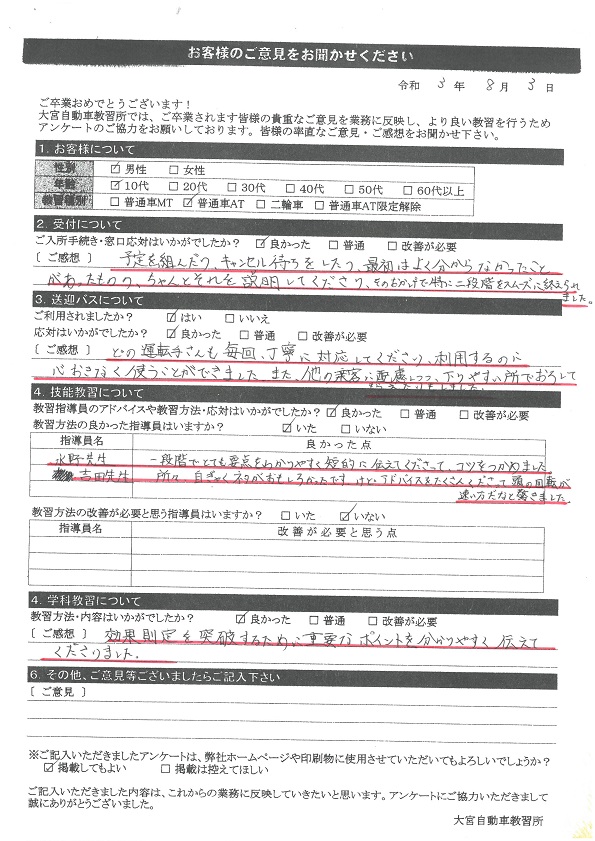 お客様のご意見をお聞かせください
令和 3 年 8 月 3 日
ご卒業おめでとうございます！
大宮自動車教習所では、ご卒業されます皆様の貴重なご意見を業務に反映し、より良い教習を行うため
アンケートのご協力をお願いしております。皆様の率直なご意見・ご感想をお聞かせ下さい。
1. お客様について
性別 ☑ 男性 □ 女性
年齢 ☑ 10代 □ 20代 □ 30代 □ 40代 □ 50代 □ 60代以上
教習種別 □ 普通車MT ☑ 普通車AT □ 二輪車 □ 普通車AT限定解除
2. 受付について
ご入所手続き・窓口応対はいかがでしたか？ ☑ 良かった □ 普通 □ 改善が必要
〔 ご感想 〕 予定を組んだり、キャンセル待ちをしたり、最初はよく分からなかったこと
があったものの、ちゃんとそれを説明してくださり、そのおかげで特に二段階をスムーズに終えられ
ました。
3. 送迎バスについて
ご利用されましたか？ ☑ はい □ いいえ
応対はいかがでしたか？ ☑ 良かった □ 普通 □ 改善が必要
〔 ご感想 〕 どの運転手さんも毎回、丁寧に対応してくださり、利用するのに
心おきなく使うことができました。また、他の乗客に配慮しつつ、下りやすい所でおろして
4. 技能教習について
教習指導員のアドバイスや教習方法・応対はいかがでしたか？ ☑ 良かった □ 普通 □ 改善が必要
教習方法の良かった指導員はいますか？ ☑ いた □ いない
指導員名 良かった点
水野先生 一段階でとても要点をわかりやすく短的に伝えてくださって、コツをつかめました
吉田先生 所々、自ぎゃくネタがおもしろかったですけど、アドバイスをたくさんくださって頭の回転が
速い方だなと驚きました。
教習方法の改善が必要と思う指導員はいますか？ □ いた ☑ いない
指導員名 改善が必要と思う点
4. 学科教習について
教習方法・内容はいかがでしたか？ ☑ 良かった □ 普通 □ 改善が必要
〔 ご感想 〕 効果測定を突破するために重要なポイントを分かりやすく伝えて
くださりました。
6. その他、ご意見等ございましたらご記入下さい
〔 ご意見 〕
※ご記入いただきましたアンケートは、弊社ホームページや印刷物に使用させていただいてもよろしいでしょうか？
☑ 掲載してもよい □ 掲載は控えてほしい
ご記入いただきました内容は、これからの業務に反映していきたいと思います。アンケートにご協力いただきまして
誠にありがとうございました。
大宮自動車教習所